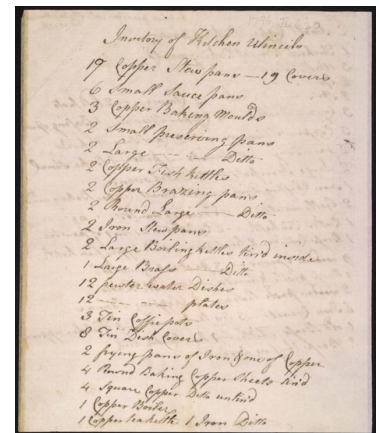 Inventory of Kitchen Utincils
19 Copper Stewpans — 19 Covers
6 Small Sauce pans
3 Copper Baking Moulds
2 Small preserving pans
2 Large — — Ditto
2 Copper Fish kettles
2 Copper Brazing pans
2 Round Large — Ditto
2 Iron Stew pans
2 Large Boiling kettles tin'd inside
1 Large Brass Ditto
12 pewter water Dishes
12 — — — plates
3 Tin Coffie pots
8 Tin Dish Covers
2 frying pans of Iron & one of Copper
4 Round Baking Copper Sheets tin'd
4 Square Copper Ditto untin'd
1 Copper Boiler
1 Copper tea kettle 1 Iron Ditto